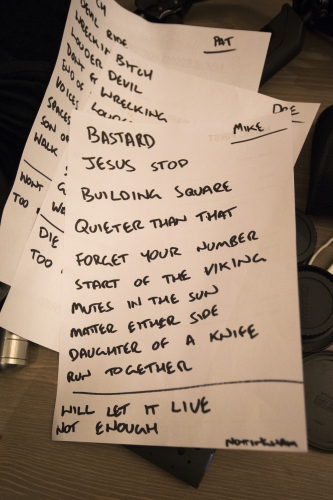 DEVIL RIDE
PAT
WRECKIN BITCH
LOUDER DEVIL
DON'T G WRECKING
END OF
VOICES
SPACES
SON OF
WALK
WON'T
TOO
DIE
TOO
DOE
MIKE
BASTARD
JESUS STOP
BUILDING SQUARE
QUIETER THAN THAT
FORGET YOUR NUMBER
START OF THE VIKING
MUTES IN THE SUN
MATTER EITHER SIDE
DAUGHTER OF A KNIFE
RUN TOGETHER
WILL LET IT LIVE
NOT ENOUGH
NOTTINGHAM